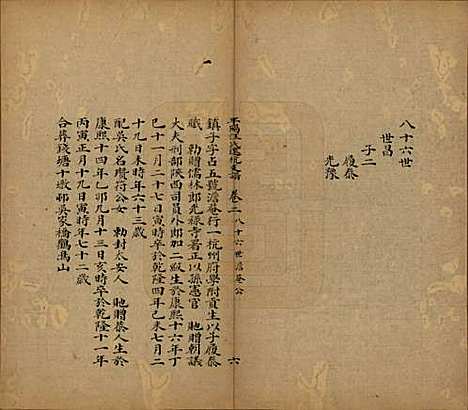 八十六世
世昌
子二
履泰
光豫
平陽汪氏遷杭支譜 卷二 八十六世 澹菴公 六
鎮子字占五號澹菴行一杭州府學附貢生以子履泰
職 勅贈儒林郎光祿寺署正以孫憲官 貤贈朝議
大夫刑部陝西司員外郎加二級生於康熙十六年丁
巳十一月二十七日寅時卒於乾隆四年己未七月二
十九日未時年六十三歲
配吳氏名瓚符公女 勅封太安人 貤贈恭人生於
康熙十四年乙卯九月十三日亥時卒於乾隆十一年
丙寅正月十九日寅時年七十二歲
合葬錢塘十墩邨吳家橋鸛鳥山